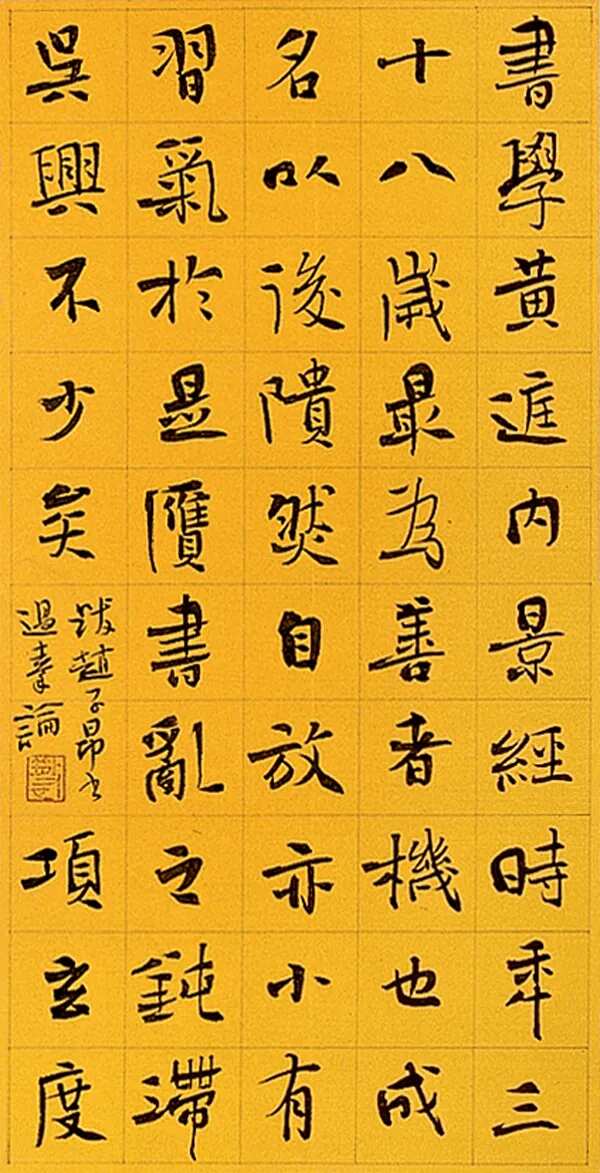 書學黃庭內景經時年三
十八歲最為善者機也成
名以後隤然自放亦小有
習氣於是贗書亂之鈍滯
吳興不少矣
跋趙子昂書
過秦論
項玄度